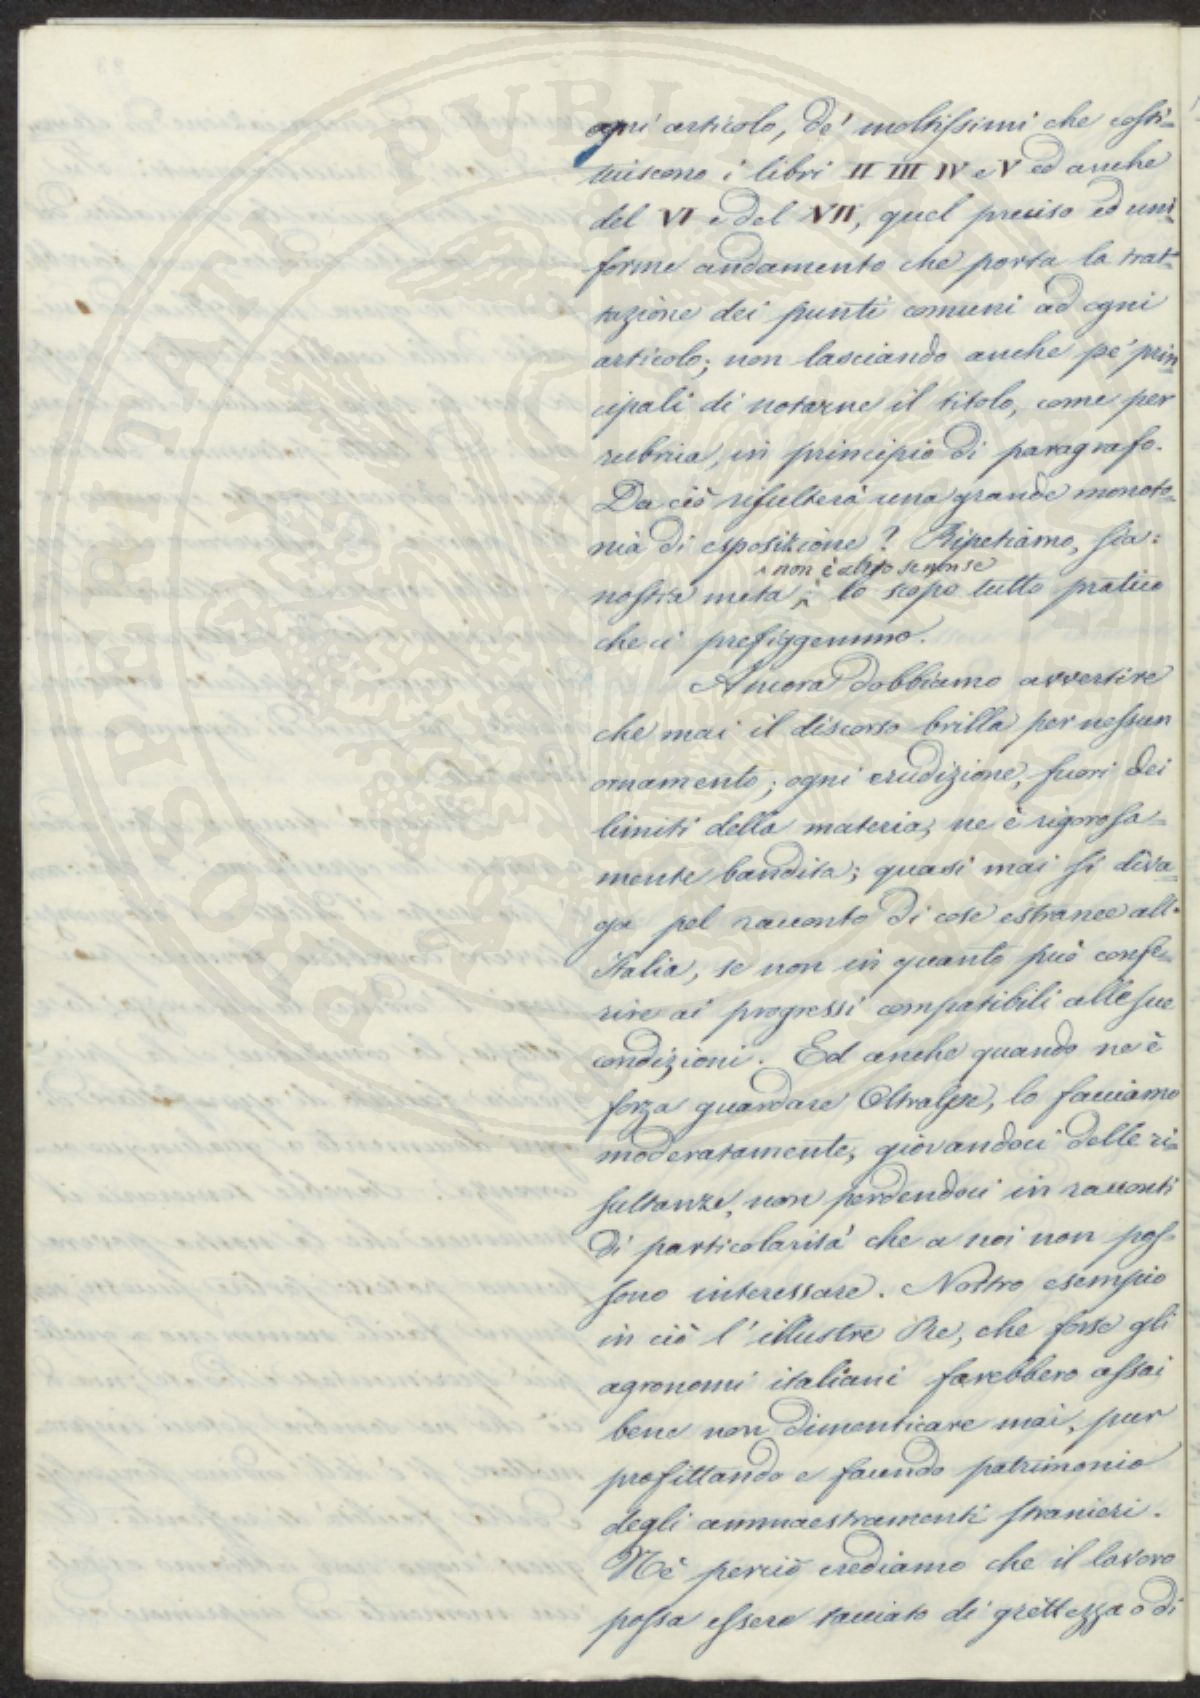 ogni articolo, de' moltissimi che costi=
tuiscono i libri II III IV e V ed anche
del VI e del VII, quel preciso ed uni=
forme andamento che porta la trat=
tazione dei punti comuni ad ogni
articolo; non lasciando anche pe' prin=
cipali di notarne il titolo, come per
rubrica, in principio di paragrafo.
Da ciò risulterà una grande monoto=
nia di esposizione? Ripetiamo, sia:
non è altro senonse
nostra meta : lo scopo tutto pratico
che ci prefiggemmo.
Ancora dobbiamo avvertire
che mai il discorso brilla per nessun
ornamento; ogni erudizione, fuori dei
limiti della materia, ne è rigorosa=
mente bandita; quasi mai si diva=
ga pel racconto di cose estranee all'
Italia, se non in quanto può confe=
rire ai progressi compatibili alle sue
condizioni. Ed anche quando ne è
forza guardare Oltralpe, lo facciamo
moderatamente, giovandoci delle ri=
sultanze, non perdendoci in racconti
di particolarità che a noi non pos=
sono interessare. Nostro esempio
in ciò l'illustre Re, che forse gli
agronomi italiani farebbero assai
bene non dimenticare mai, pur
profittando e facendo patrimonio
degli ammaestramenti stranieri.
Nè perciò crediamo che il lavoro
possa essere tacciato di grettezza o di
HOSPERITATI PUBLICAE